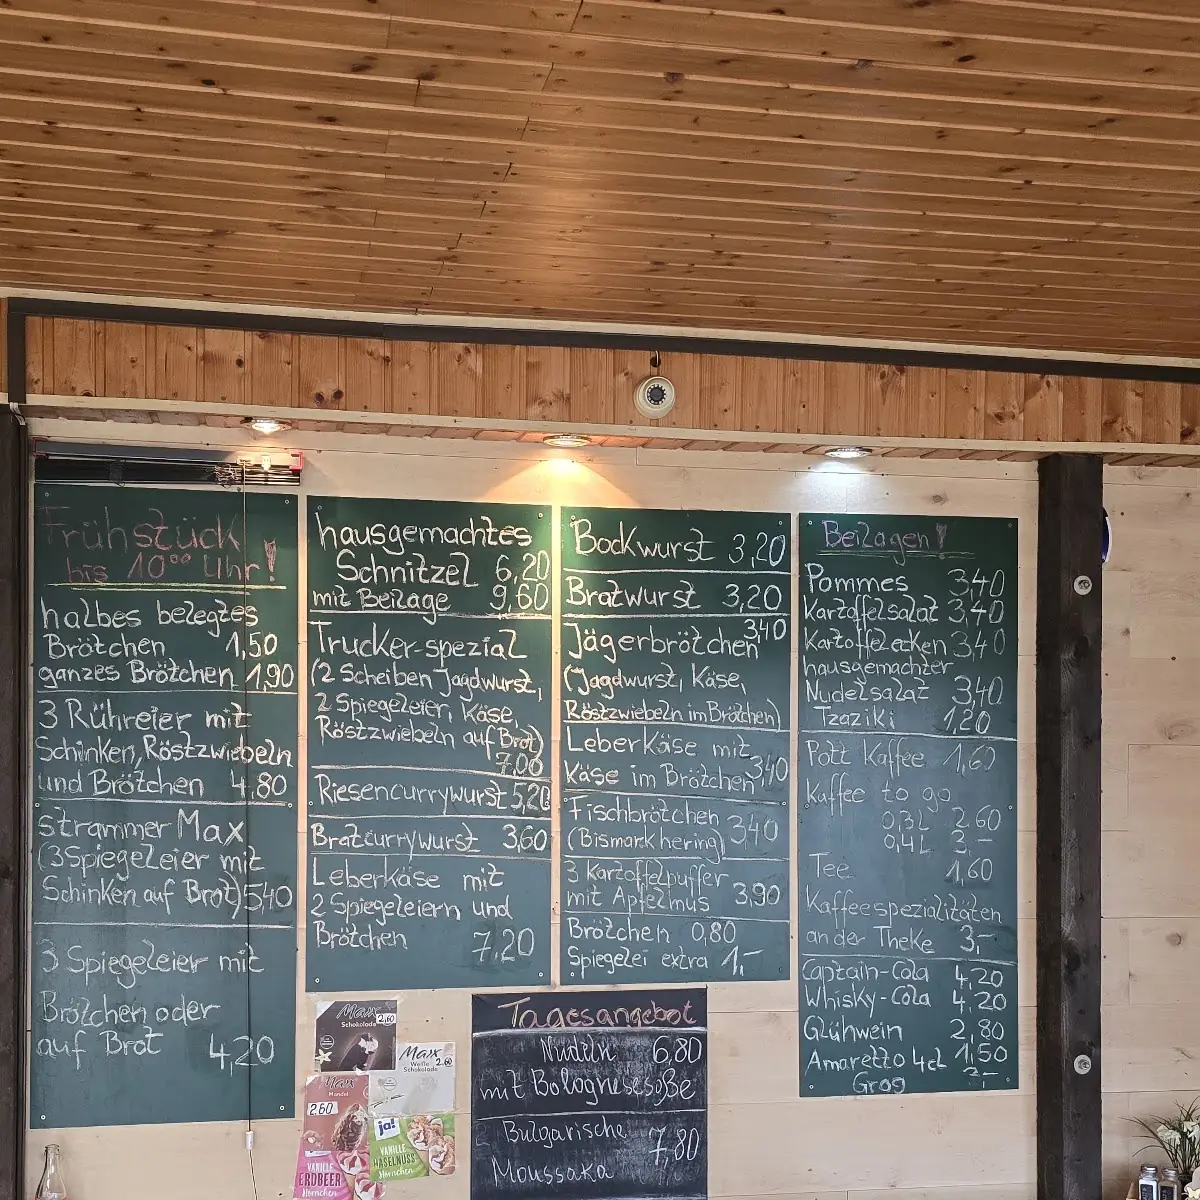 Frühstück
bis 10⁰⁰ Uhr!
halbes belegtes
Brötchen 1,50
ganzes Brötchen 1,90
3 Rühreier mit
Schinken, Röstzwiebeln
und Brötchen 4,80
strammer Max
(3 Spiegeleier mit
Schinken auf Brot) 5,40
3 Spiegeleier mit
Brötchen oder
auf Brot 4,20
hausgemachtes
Schnitzel 6,20
mit Beilage 9,60
Trucker-spezial
(2 Scheiben Jagdwurst,
2 Spiegeleier, Käse,
Röstzwiebeln auf Brot)
7,00
Riesencurrywurst 5,20
Bratcurrywurst 3,60
Leberkäse mit
2 Spiegeleiern und
Brötchen 7,20
Bockwurst 3,20
Bratwurst 3,20
Jägerbrötchen 3,40
(Jagdwurst, Käse,
Röstzwiebeln im Brötchen)
Leberkäse mit
Käse im Brötchen 3,40
Fischbrötchen
(Bismarkhering) 3,40
3 Kartoffelpuffer
mit Apfelmus 3,90
Brötchen 0,80
Spiegelei extra 1,-
Beilagen!
Pommes 3,40
Kartoffelsalat 3,40
Kartoffelecken 3,40
hausgemachter
Nudelsalat 3,40
Tzaziki 1,20
Pott Kaffee 1,60
Kaffee to go
0,3L 2.60
0,4L 3,-
Tee 1,60
Kaffeespezialitäten
an der Theke 3,-
Captain-Cola 4,20
Whisky-Cola 4,20
Glühwein 2,80
Amaretto 4cl 1,50
Grog 3,-
Maxx
Schokolade
2,60
Maxx
Weiße
Schokolade
2.60
Maxx
Mandel
2.60
VANILLE
ERDBEER
Hörnchen
ja!
VANILLE
HASELNUSS
Hörnchen
Tagesangebot
Nudeln 6,80
mit Bolognesesoße
Bulgarische 7,80
Moussaka